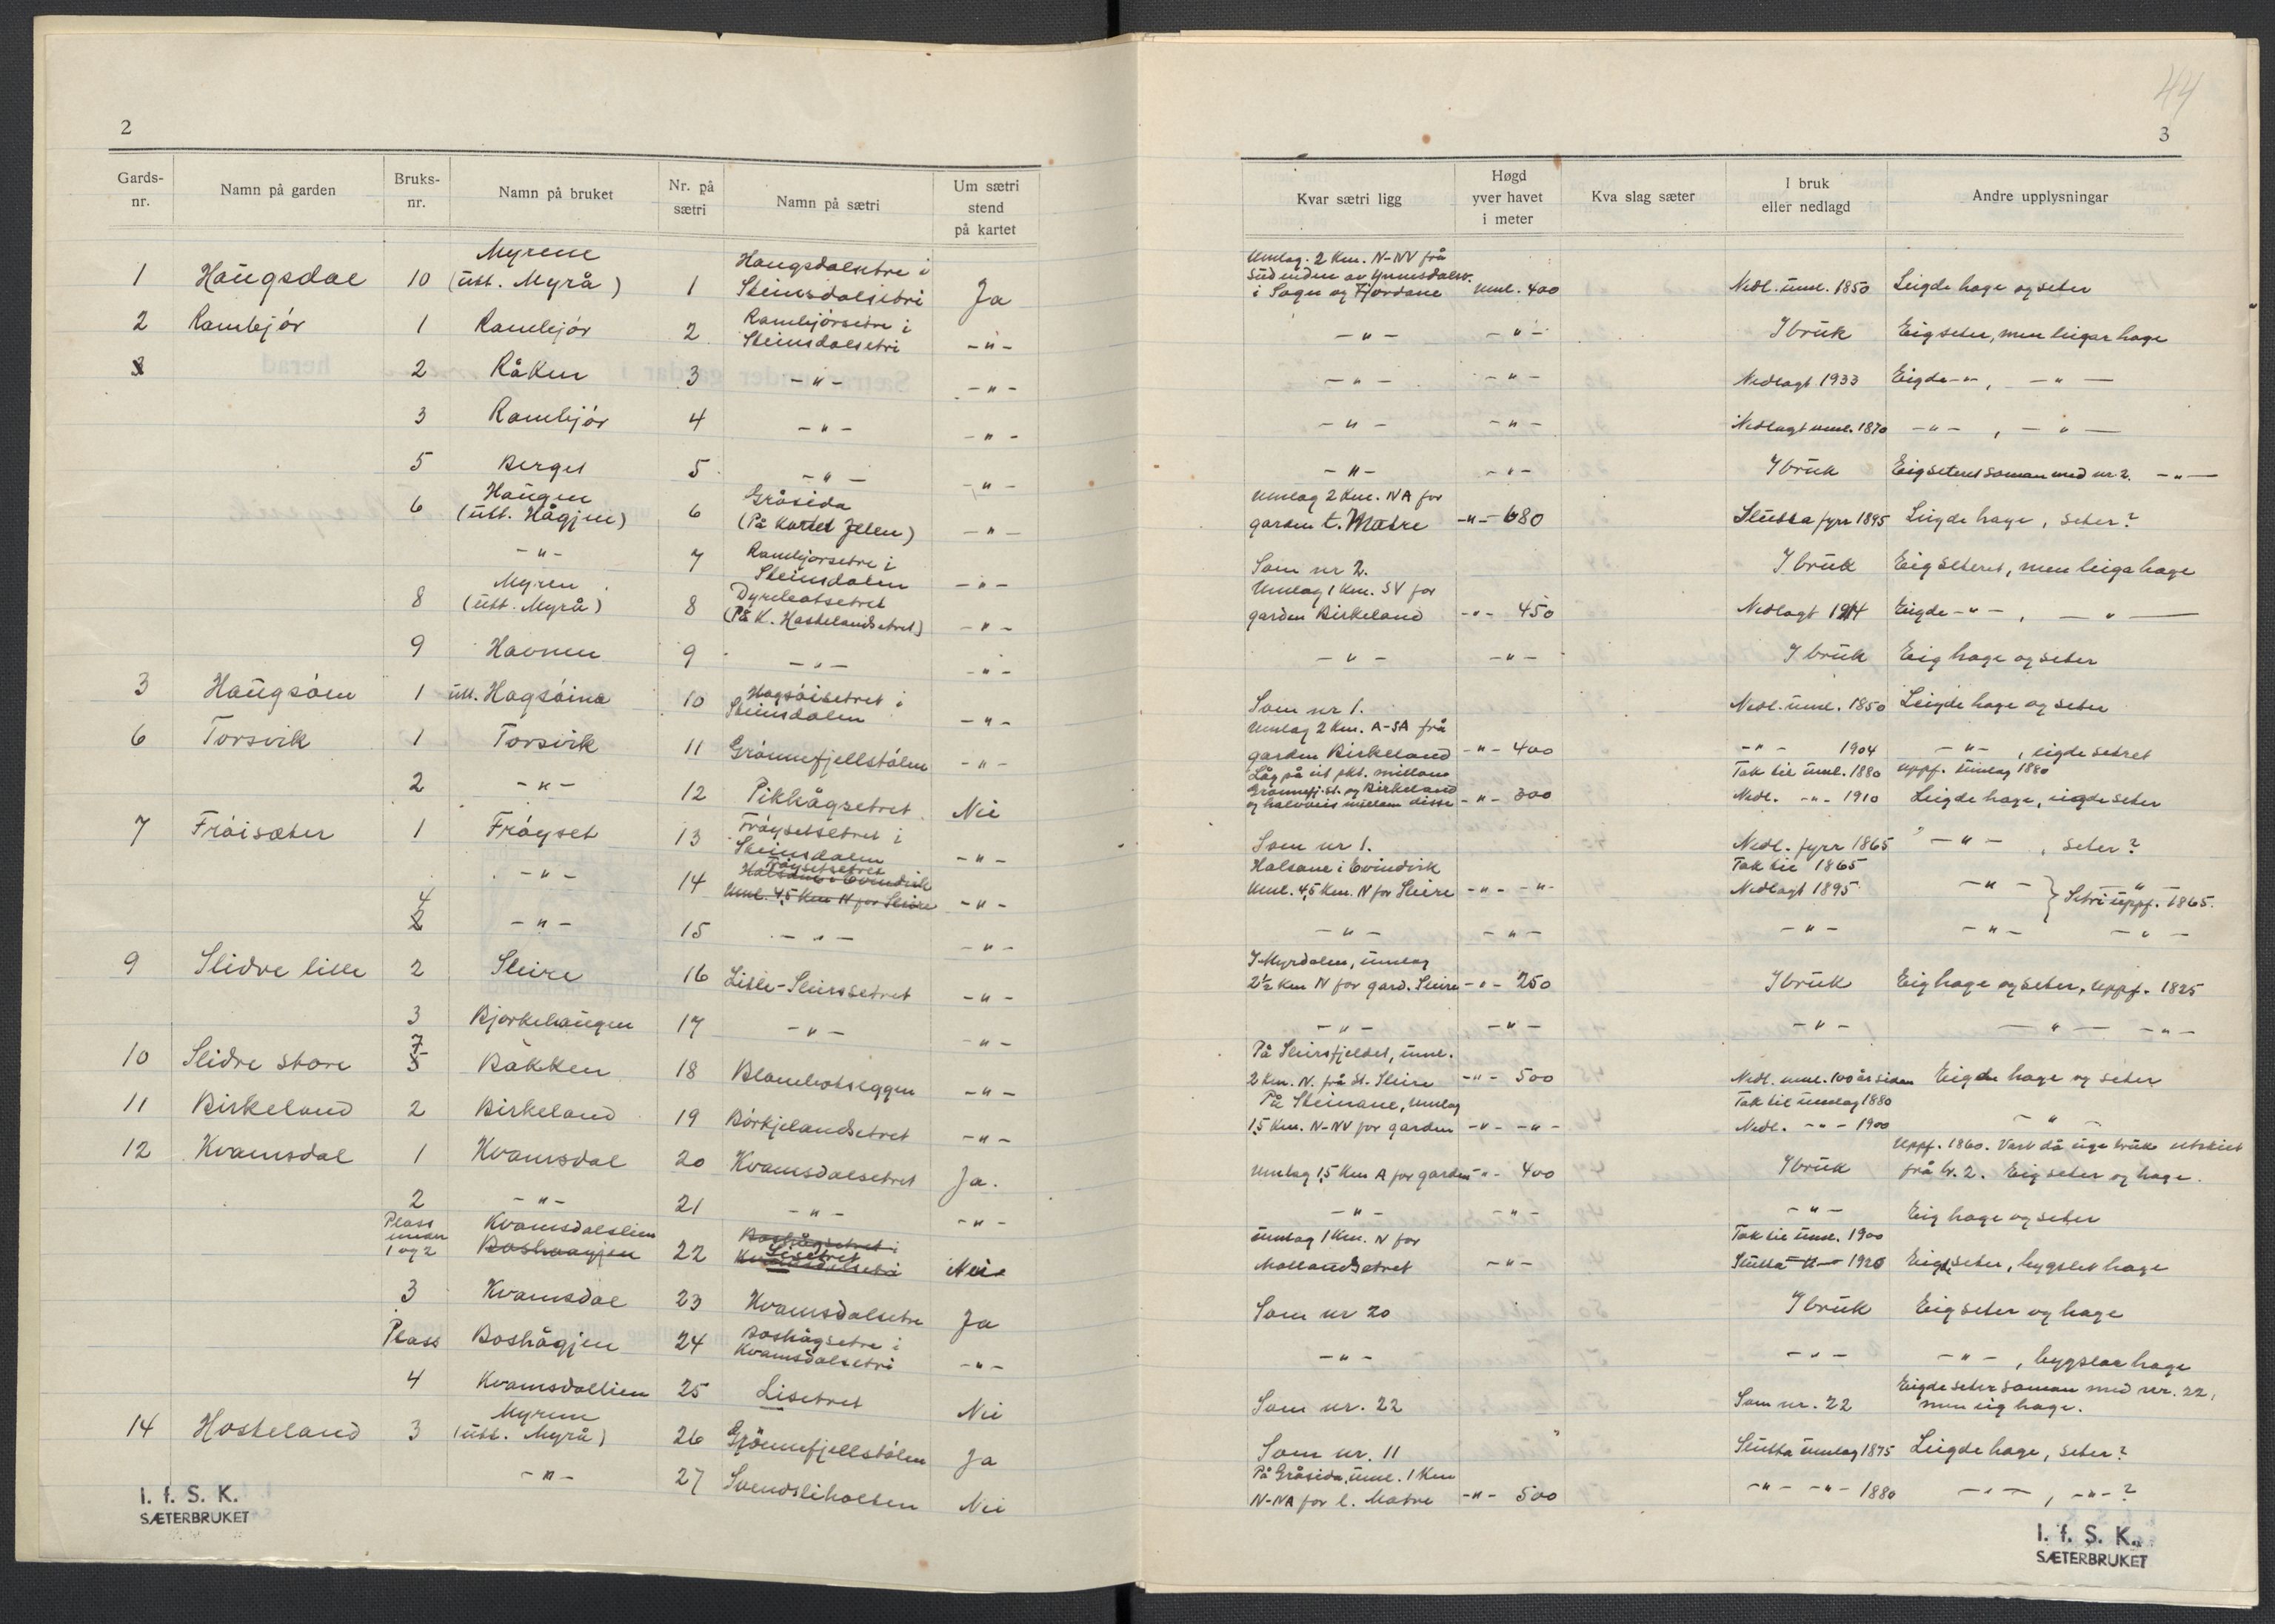 2
Gards-nr. Namn på garden Bruks-nr. Namn på bruket Nr. på sætri Namn på sætri Um sætri stend på kartet
Myrene Haugsdalsetre i
1 Haugsdal 10 (utt. Myrå) 1 Steinsdalsetri Ja
Rambjørsetre i
2 Rambjør 1 Rambjør 2 Steinsdalsetri -"-
3 2 Råken 3 -"- -"-
3 Rambjør 4 -"- -"-
5 Berget 5 -"- -"-
Haugen Gråsida
6 (utt. Hågjen) 6 (På kartet Jelen) -"-
-"- 7 Rambjørsetre i
Steinsdalen -"-
Myren Dyrebotsetret
8 (utt. Myrå) 8 (På K. Hostelandsetret) -"-
9 Havnen 9 -"- -"-
3 Haugsøen 1 utt. Hagsøina 10 Hagsøisetret i
Steinsdalen -"-
6 Torsvik 1 Torsvik 11 Grønnefjellstølen -"-
2 -"- 12 Pikhågsetret Nei
7 Frøisæter 1 Frøyset 13 Frøysetsetret i
Steinsdalen -"-
Frøysetsetret
-"- 14 Halsane i Evindvik
Uml. 4,5 Km N for Sleire -"-
4
2 -"- 15 -"- -"-
9 Slidre lille 2 Sleire 16 Lisle-Sleirssetret -"-
3 Bjørkehaugen 17 -"- -"-
7
10 Slidre store 5 Bakken 18 Blombotseggen -"-
11 Birkeland 2 Birkeland 19 Børkjelandsetret -"-
12 Kvamsdal 1 Kvamsdal 20 Kvamsdalsetret Ja.
2 -"- 21 -"- -"-
Plass Kvamsdalslien Boshågsetret i
under Lisetret
1 og 2 Boshaugjen 22 Kvamsdalsetri Nei
3 Kvamsdal 23 Kvamsdalsetre Ja
Plass Boshågjen 24 Boshågsetre i
Kvamsdalsetri -"-
4 Kvamsdallien 25 Lisetret Nei
14 Hosteland 3 Myrene
(utt. Myrå) 26 Grønnefjellstølen Ja
-"- 27 Svendsliholten Nei
I. f. S. K.
SÆTERBRUKET
44
3
Kvar sætri ligg Høgd yver havet i meter Kva slag sæter I bruk eller nedlagd Andre upplysningar
Umlag. 2 Km. N-NV frå
Sudenden av Ynnesdalsv.
i Sogn og Fjordane uml. 400 Nedl. uml. 1850 Leigde hage og seter
-"- -"- I bruk Eig seter, men leigar hage
-"- -"- Nedlagt 1933 Eigde -"-, -"-
-"- -"- Nedlagt uml. 1870 -"-, -"-
-"- -"- I bruk Eig seteret saman med nr. 2. -"-
Umlag 2 Km. NA for
garden t. Matre -"- 680 Slutta fyrr 1895 Leigde hage, seter?
Som nr 2. I bruk Eig seteret, men leiga hage
Umlag 1 Km. SV for
garden Birkeland -"- 450 Nedlagt 1914 Eigde -"-, -"-
-"- -"- I bruk Eig hage og seter
Som nr 1. Nedl. uml. 1850 Leigde hage og seter
Umlag 2 Km. A-SA frå
garden Birkeland -"- 400 -"- 1904 -"-, eigde setret
Låg på eit pkt. millom Tok til uml. 1880 uppf. umlag 1880
Grønnefj. st. og Birkeland
og halvveis millom disse -"- 300 Nedl. -"- 1910 Leigde hage, eigde seter
Som nr 1. Nedl. fyrr 1865 -"-, seter?
Halsane i Evindvik Tok til 1865
Uml. 4,5 Km. N for Sleire -"- -"- Nedlagt 1895 -"- } Setri uppf. 1865.
-"- -"- -"- -"- -"-
I Myrdalen, umlag
2½ Km N for gard. Sleire -"- 250 I bruk Eig hage og seter, uppf. 1825
-"- -"- -"- -"- -"-
På Sleirsfjeldet, uml.
2 Km. N. frå St. Sleire -"- 500 Nedl. uml. 100 år sidan Eigde hage og seter
På Steinane, umlag Tok til umlag 1880
1,5 Km. N-NV for garden -"- -"- Nedl. -"- 1900 -"-
Uppf. 1860. Vart då eige bruk utskilt
Umlag 1,5 Km A for garden -"- 400 I bruk frå br. 2. Eig seter og hage.
-"- -"- -"- Eig hage og seter
umlag 1 Km. N for Tok til uml. 1900
Mollandsetret -"- Slutta -"- 1920 Eigde seter, bygslet hage
Som nr 20 I bruk Eig seter og hage
-"- -"- -"-, bygslar hage
Eigde seter saman med nr. 22,
Som nr. 22 Som nr. 22 men eig hage.
Som nr. 11 Slutta umlag 1875 Leigde hage, seter?
På Gråsida, uml. 1 Km
N-NA for l. Matre -"- 500 -"- -"- 1880 -"-, -"-?
I. f. S. K.
SÆTERBRUKET